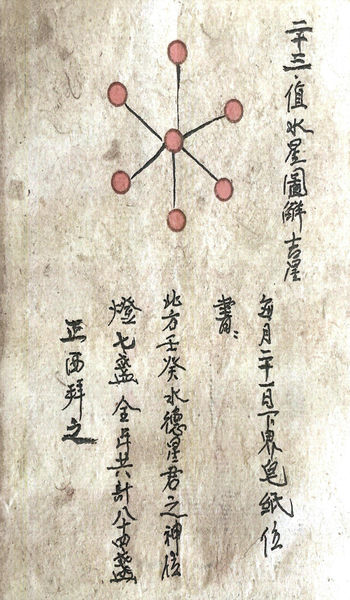 二十三、值水星圖解吉星
每月二十一日下界皂紙位
書：
北方壬癸水德星君之神位
燈七盞全年共計八十四盞
正西拜之